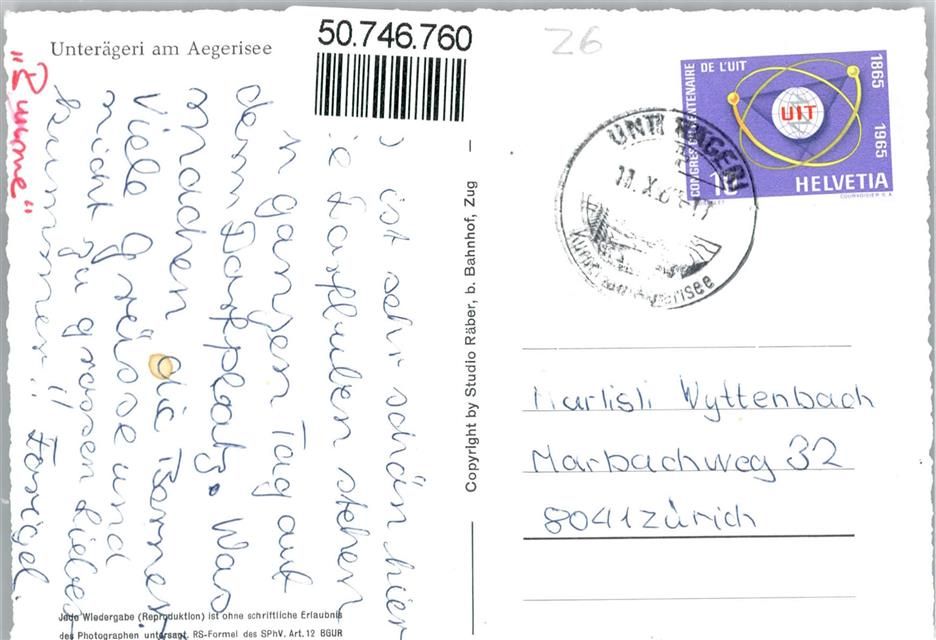 Unterägeri am Aegerisee
50.746.760
ist sehr schön hier
Dorfbuben stehen
ganzen Tag auf
dem Dorfplatz. Was
machen die Berner
Viele Grüsse und
nicht zu grossen Liebes
kummer!!
Copyright by Studio Räber, b. Bahnhof, Zug
Jede Wiedergabe (Reproduktion) ist ohne schriftliche Erlaubnis
des Photographen untersagt. RS-Formel des SPhV. Art. 12 BGUR
Z6
CONGRES DU CENTENAIRE DE L'UIT
1865 1965
UIT
10
HELVETIA
11.X.
Wyttenbach
Marbachweg 32
8041 Zürich